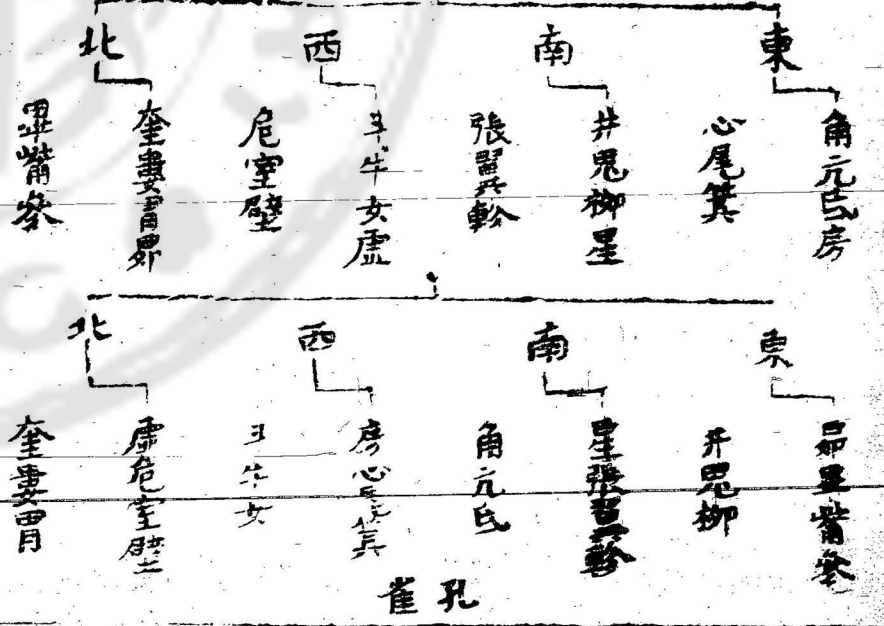 東
角亢氐房
心尾箕
南
井鬼柳星
張翼軫
西
斗牛女虛
危室壁
北
奎婁胃昴
畢觜參
東
昴畢觜參
井鬼柳
南
星張翼軫
角亢氐
西
房心尾箕
斗牛女
北
虛危室壁
奎婁胃
孔雀